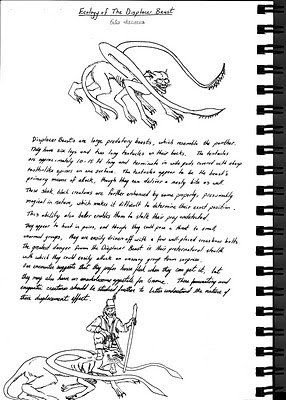 Ecology of The Displacer Beast
Displacer Beasts are large predatory beasts, which resemble the panther.
They have six legs and two long tentacles on their backs. The tentacles
are approximately 10-15 ft long and terminate in wide pads covered with sharp
toothlike spines on one surface. The tentacles appear to be the beast's
primary means of attack, though they can deliver a nasty bite as well.
These sleek black creatures are further enhanced by some property, presumably
magical in nature, which makes it difficult to determine their exact position.
This ability also better enables them to stalk their prey undetected.
They appear to hunt in pairs, and though they could pose a threat to small
normal groups, they are easily driven off with a few well-placed crossbow bolts.
The greatest danger from the Displacer Beast is their preternatural stealth
with which they could easily attack an unwary group town surprise.
Our encounter suggests that they prefer horse flesh when they can get it, but
they may also have an unwholesome appetite for Gnome. These fascinating and
enigmatic creatures should be studied further to better understand the nature of
their displacement effect.